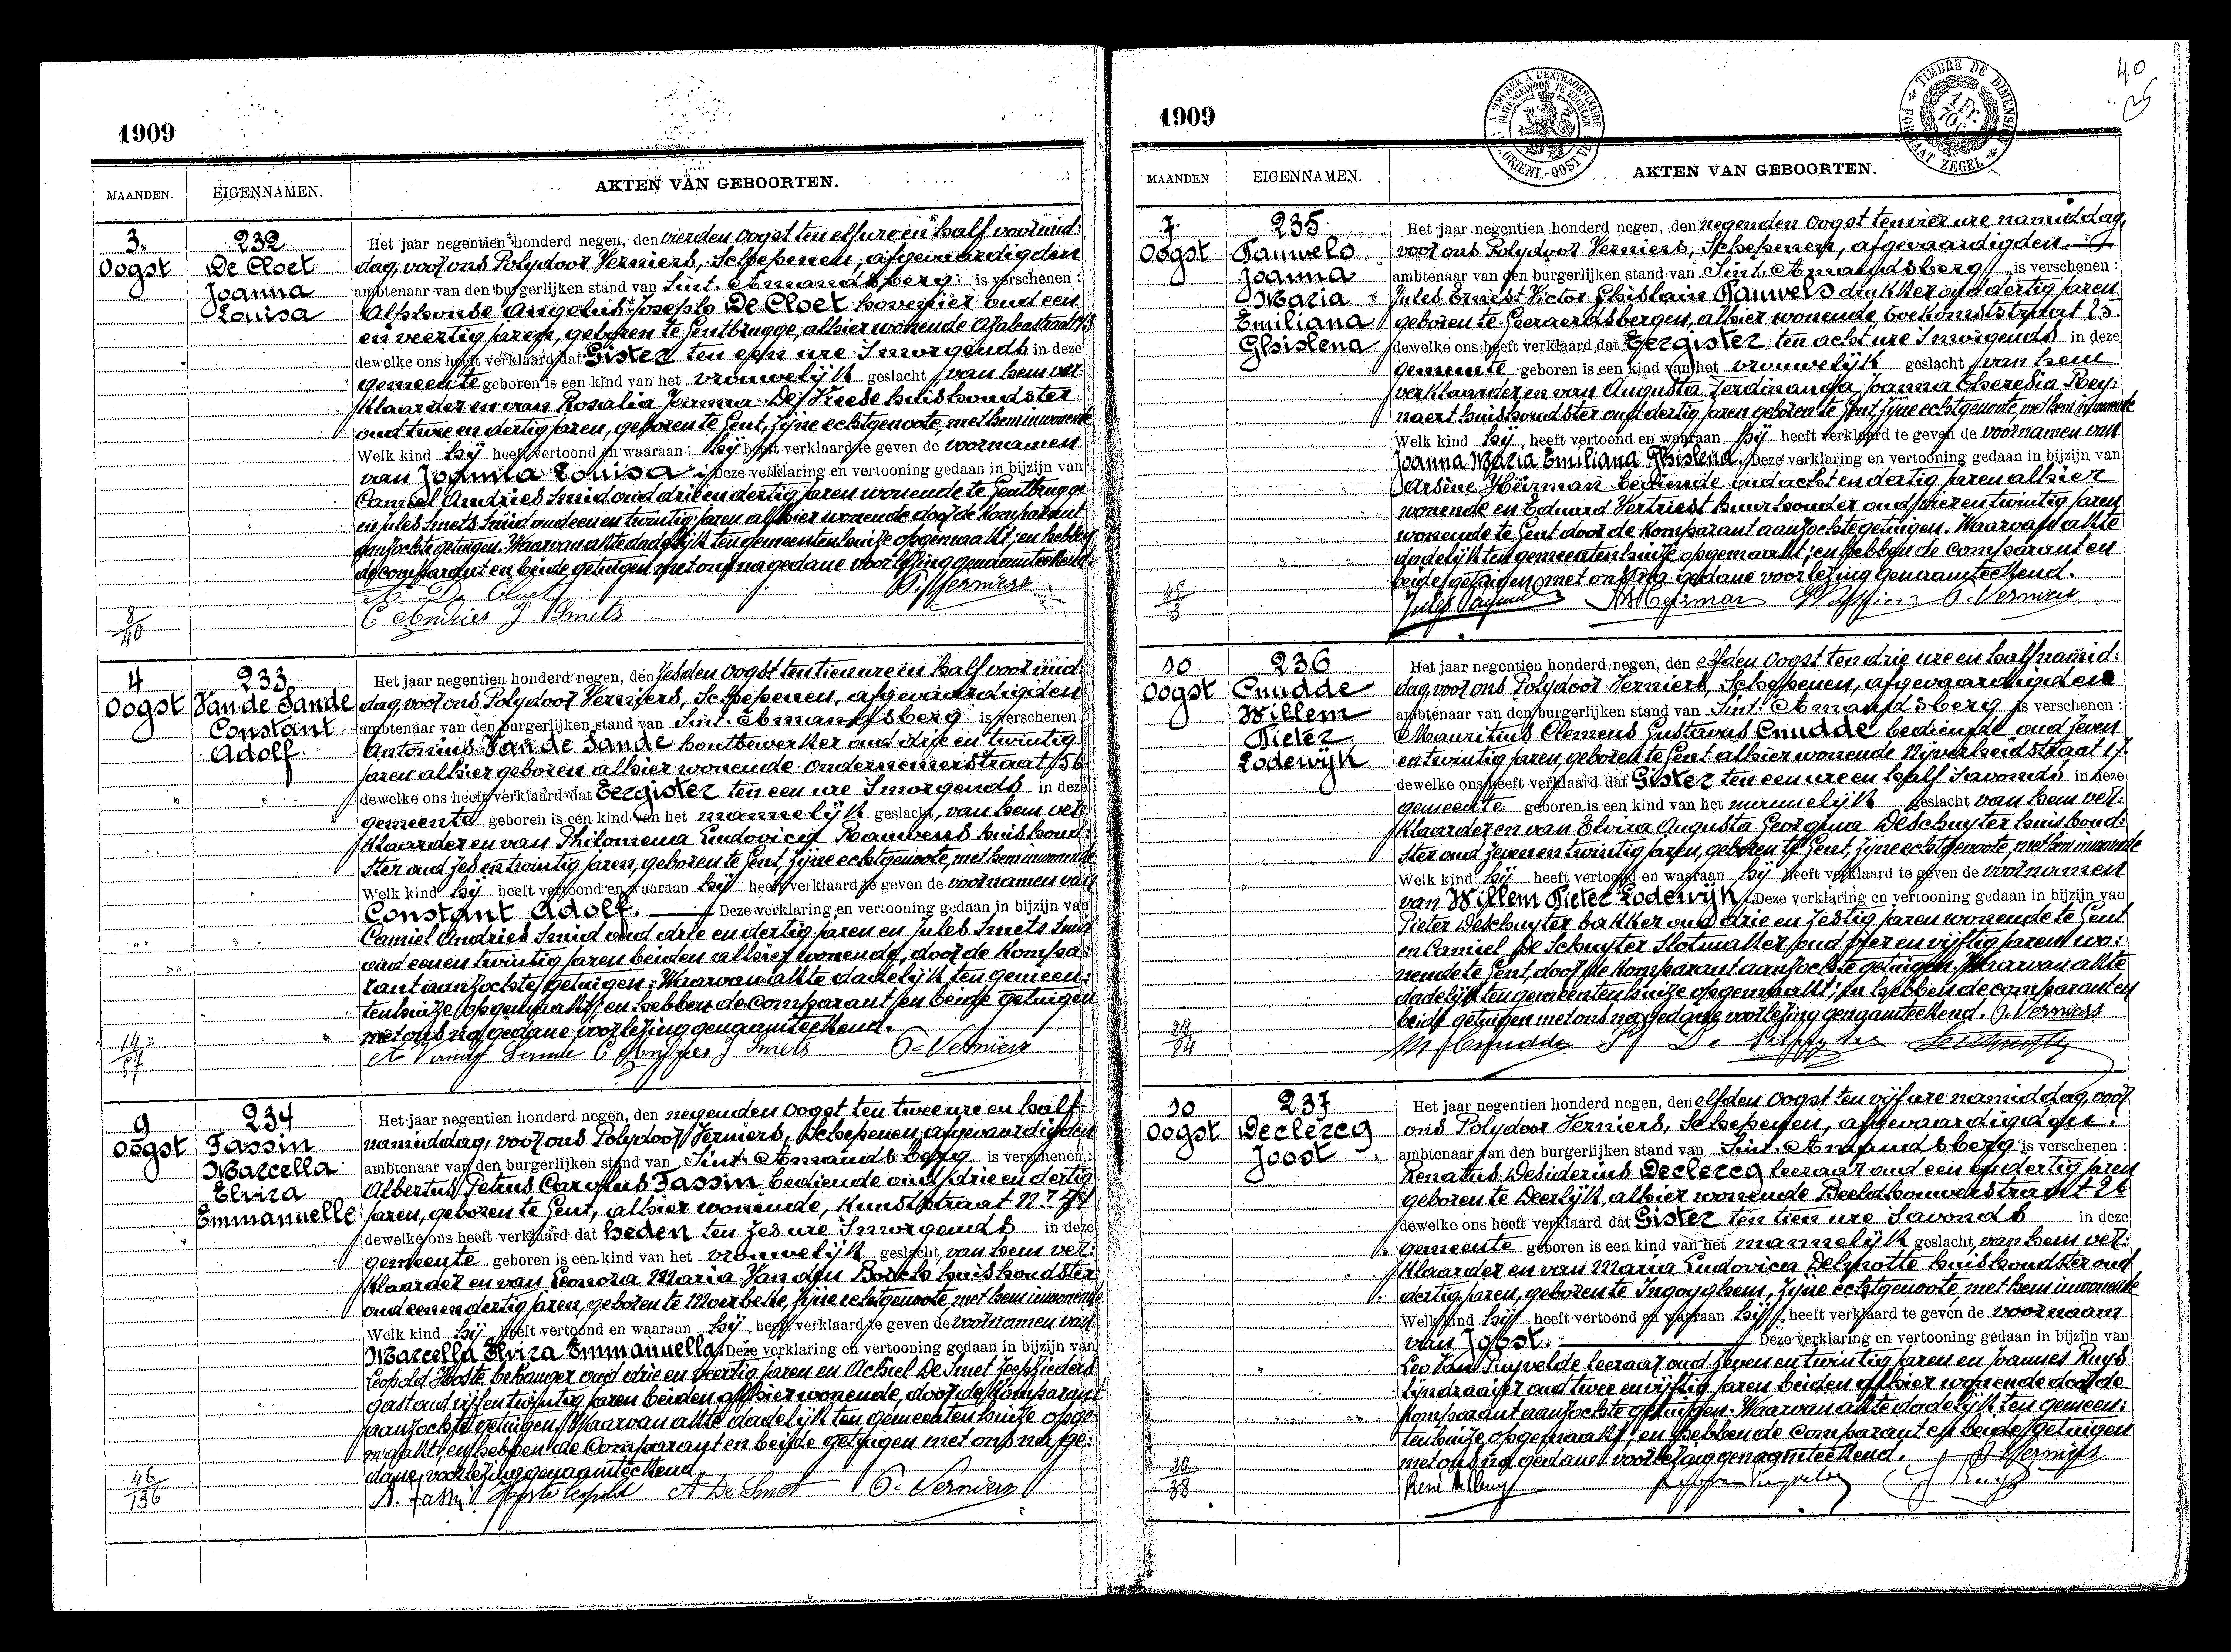 1909
MAANDEN. EIGENNAMEN. AKTEN VAN GEBOORTEN.
3.
Oogst
232
De Cloet
Joanna
Louisa
Het jaar negentien honderd negen, den vierden Oogst ten elf ure en half voormid:
dag, voor ons Polydoor Verniers, Schepenen, afgevaardigden
ambtenaar van den burgerlijken stand van Sint. Amandsberg is verschenen :
Alphonse Angelus Joseph De Cloet hovenier oud een
en veertig jaren, geboren te Gentbrugge, alhier wonende Azaleastraat
dewelke ons heeft verklaard dat Gister ten een ure Smorgends in deze
gemeente geboren is een kind van het vrouwelijk geslacht, van hem ver:
klaarder en van Rosalia Joanna De Vreese huishoudster
oud twee en dertig jaren, geboren te Gent, zijne echtgenoote, met hem inwonende
Welk kind hij heeft vertoond en waaraan hij heeft verklaard te geven de voornamen
van Joanna Louisa. Deze verklaring en vertooning gedaan in bijzijn van
Camiel Andries Smid oud drie en dertig jaren wonende te Gentbrugge
en Jules Smets Smid oud een en twintig jaren alhier wonende door de Komparant
aanzochte getuigen. Waarvan akte dadelijk ten gemeentenhuize opgemaakt; en hebben
de comparant en beide getuigen met ons na gedane voorlezing genaamteekend.
A. De Cloet P. Verniers
C Andries J Smets
8/40
4
Oogst
233
Van de Sande
Constant
Adolf
Het jaar negentien honderd negen, den zesden Oogst ten tien ure en half voormid:
dag voor ons Polydoor Verniers, Schepenen, afgevaardigden
ambtenaar van den burgerlijken stand van Sint. Amandsberg is verschenen
Antonius Van de Sande houtbewerker oud drie en twintig
jaren alhier geboren alhier wonende Ondernemerstraat 56
dewelke ons heeft verklaard dat Eergister ten een ure Smorgends in deze
gemeente geboren is een kind van het mannelijk geslacht, van hem ver:
klaarder en van Philomena Ludovica Rauwens huishoud:
ster oud zes en twintig jaren, geboren te Gent, zijne echtgenoote, met hem inwonende
Welk kind hij heeft vertoond en waaraan hij heeft verklaard te geven de voornamen van
Constant Adolf. Deze verklaring en vertooning gedaan in bijzijn van
Camiel Andries Smid oud drie en dertig jaren en Jules Smets Smid
oud een en twintig jaren beiden alhier wonende, door de Kompa:
rant aanzochte getuigen. Waarvan akte dadelijk ten gemeen:
tenhuize opgemaakt, en hebben de comparant en beide getuigen
met ons na gedane voorlezing genaamteekend.
A Vande Sande C Andries J Smets P. Verniers
9
Oogst
234
Fassin
Marcella
Elvira
Emmanuelle
Het jaar negentien honderd negen, den negenden Oogst ten twee ure en half
namiddag, voor ons Polydoor Verniers, Schepenen afgevaardigden
ambtenaar van den burgerlijken stand van Sint. Amandsberg is verschenen :
Albertus Petrus Carolus Fassin bediende oud drie en dertig
jaren, geboren te Gent, alhier wonende, Kunststraat
dewelke ons heeft verklaard dat heden ten zes ure Smorgends in deze
gemeente geboren is een kind van het vrouwelijk geslacht, van hem ver:
klaarder en van Leonora Maria Van den Bosch huishoudster
oud een en dertig jaren, geboren te Moerbeke, zijne echtgenoote, met hem inwonende.
Welk kind hij heeft vertoond en waaraan hij heeft verklaard te geven de voornamen van
Marcella Elvira Emmanuella. Deze verklaring en vertooning gedaan in bijzijn van
Leopold Hoste behanger oud drie en veertig jaren en Achiel De Smet
gast oud vijf en twintig jaren beiden alhier wonende, door de Komparant
aanzochte getuigen. Waarvan akte dadelijk ten gemeentenhuize opge:
maakt, en hebben de Comparant en beide getuigen met ons na ge:
dane voorlezing genaamteekend.
A. Fassin Hoste Leopold A De Smet P. Verniers
46/136
1909
MAANDEN EIGENNAMEN. AKTEN VAN GEBOORTEN.
TIMBRE DE DIMENSION
1 Fr.
FORMAAT ZEGEL
40
7
Oogst
235
Pauwels
Joanna
Maria
Emiliana
Ghislena
Het jaar negentien honderd negen, den negenden Oogst ten vier ure namiddag,
voor ons Polydoor Verniers, Schepenen, afgevaardigden.
ambtenaar van den burgerlijken stand van Sint. Amandsberg is verschenen :
Jules Ernest Victor Ghislain Pauwels drukker oud dertig jaren
geboren te Geeraerdsbergen, alhier wonende toekomststraat 25.
dewelke ons heeft verklaard dat Eergister ten acht ure Smorgends in deze
gemeente geboren is een kind van het vrouwelijk geslacht van hem
verklaarder en van Augusta Ferdinanda Joanna Theresia Rey:
naert huishoudster oud dertig jaren geboren te Gent, zijne echtgenoote, met hem inwonende
Welk kind hij, heeft vertoond en waaraan hij heeft verklaard te geven de voornamen van
Joanna Maria Emiliana Ghislena. Deze verklaring en vertooning gedaan in bijzijn van
Arsène Heirman bediende oud acht en dertig jaren alhier
wonende en Eduard Vertriest huurhouder oud vier en twintig jaren
wonende te Gent door de Komparant aanzochte getuigen. Waarvan akte
dadelijk ten gemeentenhuize opgemaakt; en hebben de comparant en
beide getuigen met ons na gedane voorlezing genaamteekend.
Jules Pauwels P. Verniers
10
Oogst
236
Cnudde
Willem
Pieter
Lodewijk
Het jaar negentien honderd negen, den elfden Oogst ten drie ure en half namid:
dag voor ons Polydoor Verniers, Schepenen, afgevaardigden
ambtenaar van den burgerlijken stand van Sint. Amandsberg is verschenen :
Mauritius Clemens Gustavus Cnudde bediende oud zeven
en twintig jaren, geboren te Gent alhier wonende Nijverheidstraat 17.
dewelke ons heeft verklaard dat Gister ten een ure en half Savonds in deze
gemeente geboren is een kind van het mannelijk geslacht van hem ver:
klaarder en van Elvira Augusta Georgina Deschuyter huishoud:
ster oud zeven en twintig jaren, geboren te Gent, zijne echtgenoote, met hem inwonende
Welk kind hij heeft vertoond en waaraan hij heeft verklaard te geven de voornamen
van Willem Pieter Lodewijk. Deze verklaring en vertooning gedaan in bijzijn van
Pieter Deschuyter bakker oud drie en zestig jaren wonende te Gent
en Camiel De Schuyter Slotmaker oud vier en vijftig jaren wo:
nende te Gent, door de Komparant aanzochte getuigen. Waarvan akte
dadelijk ten gemeentenhuize opgemaakt; en hebben de comparant en
beide getuigen met ons na gedane voorlezing genaamteekend. P. Verniers
M Cnudde
28/84
10
Oogst
237
Declercq
Joost
Het jaar negentien honderd negen, den elfden Oogst ten vijf ure namiddag, voor
ons Polydoor Verniers, Schepenen, afgevaardigden.
ambtenaar van den burgerlijken stand van Sint. Amandsberg is verschenen :
Renatus Desiderius Declercq leeraar oud een en dertig jaren
geboren te Deerlijk, alhier wonende Beeldhouwerstraat 26
dewelke ons heeft verklaard dat Gister ten tien ure Savonds in deze
gemeente geboren is een kind van het mannelijk geslacht, van hem ver:
klaarder en van Maria Ludovica Delmotte huishoudster oud
dertig jaren, geboren te Ingoyghem, zijne echtgenoote met hem inwonende
Welk kind hij heeft vertoond en waaraan hij heeft verklaard te geven de voornaam
van Joost. Deze verklaring en vertooning gedaan in bijzijn van
Leo Van Puyvelde leeraar oud zeven en twintig jaren en Joannes Ruys
lijndraaier oud twee en vijftig jaren beiden alhier wonende door de
Komparant aanzochte getuigen. Waarvan akte dadelijk ten gemeen:
tenhuize opgemaakt, en hebben de comparant en beide getuigen
met ons na gedane voorlezing genaamteekend. P Verniers
20/38